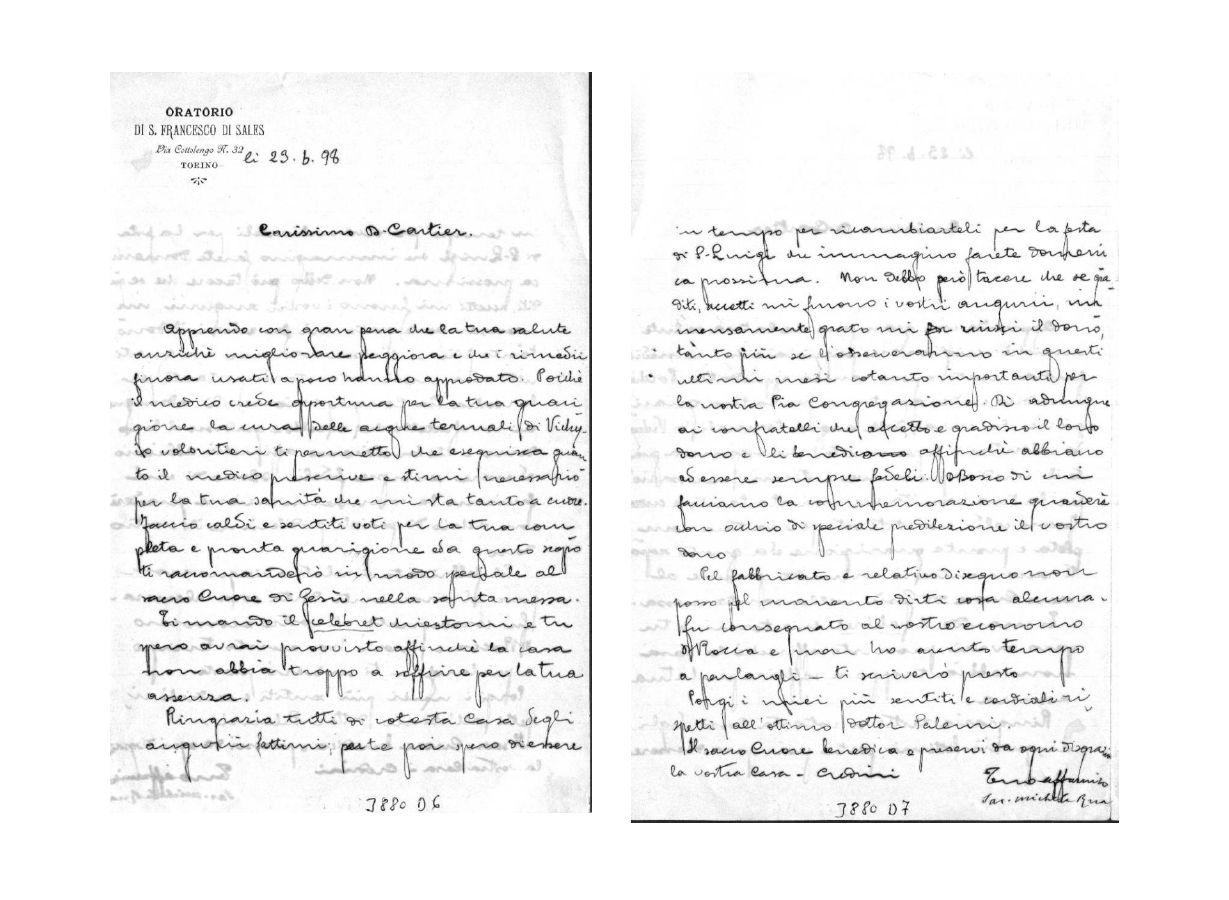 ORATORIO
DI S. FRANCESCO DI SALES
Via Cottolengo N. 32
TORINO
li 23. 6. 98
Carissimo D. Cartier.
Apprendo con gran pena che la tua salute
anzichè migliorare peggiora e che i rimedii
finora usati a poco hanno approdato. Poichè
il medico crede opportuna per la tua guari
gione la cura delle acque termali di Vichy
Io volontieri ti permetto che eseguisca quan
to il medico prescrive e stimi necessario
per la tua sanità che mi sta tanto a cuore.
Faccio caldi e sentiti voti per la tua com
pleta e pronta guarigione ed a questo scopo
ti raccomanderò in modo speciale al
sacro Cuore di Gesù nella santa messa.
Ti mando il celebret chiestomi e tu
spero avrai provvisto affinchè la casa
non abbia troppo a soffrire per la tua
assenza.
Ringrazia tutti di cotesta Casa degli
augurii fattimi; per te poi spero di essere
J880 D6
in tempo per ricambiarteli per la festa
di S. Luigi che immagino farete domeni
ca prossima. Non debbo però tacere che se gra
diti, accetti mi furono i vostri augurii, im
mensamente grato mi riuscì il dono,
tanto più se l'osserveranno in questi
ultimi mesi cotanto importanti per
la nostra Pia Congregazione. Dì adunque
ai confratelli che accetto e gradisco il loro
dono e li benedico affinchè abbiano
ad essere sempre fedeli. D Bosco di cui
facciamo la commemorazione guarderà
con occhio di speciale predilezione il vostro
dono
Pel fabbricato e relativo disegno non
posso pel momento dirti cosa alcuna.
fu consegnato al nostro economo
D Rocca e non ho avuto tempo
a parlargli – ti scriverò presto
Porgi i miei più sentiti e cordiali ri
spetti all'ottimo dottor
Il sacro Cuore benedica e preservi da ogni disgrazia
la vostra Casa – Credimi
Tuo affmo in
Sac. Michele Rua
J880 D7